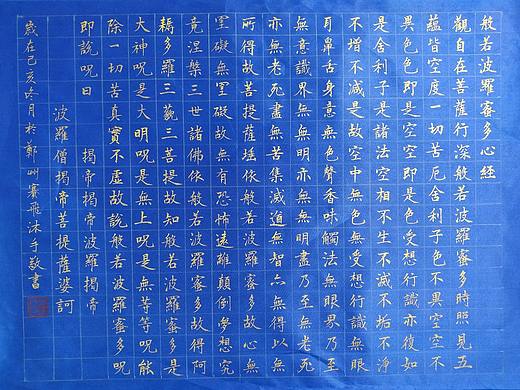 般若波羅蜜多心經
觀自在菩薩行深般若波羅蜜多時照見五
蘊皆空度一切苦厄舍利子色不異空空不
異色色即是空空即是色受想行識亦復如
是舍利子是諸法空相不生不滅不垢不淨
不增不減是故空中無色無受想行識無眼
耳鼻舌身意無色聲香味觸法無眼界乃至
無意識界無無明亦無無明盡乃至無老死
亦無老死盡無苦集滅道無智亦無得以無
所得故菩提薩埵依般若波羅蜜多故心無
罣礙無罣礙故無有恐怖遠離顛倒夢想究
竟涅槃三世諸佛依般若波羅蜜多故得阿
耨多羅三藐三菩提故知般若波羅蜜多是
大神呪是大明呪是無上呪是無等等呪能
除一切苦真實不虛故說般若波羅蜜多呪
即說呪曰 揭帝揭帝波羅揭帝
波羅僧揭帝菩提薩婆訶
歲在己亥冬月於鄭州賽飛沐手敬書